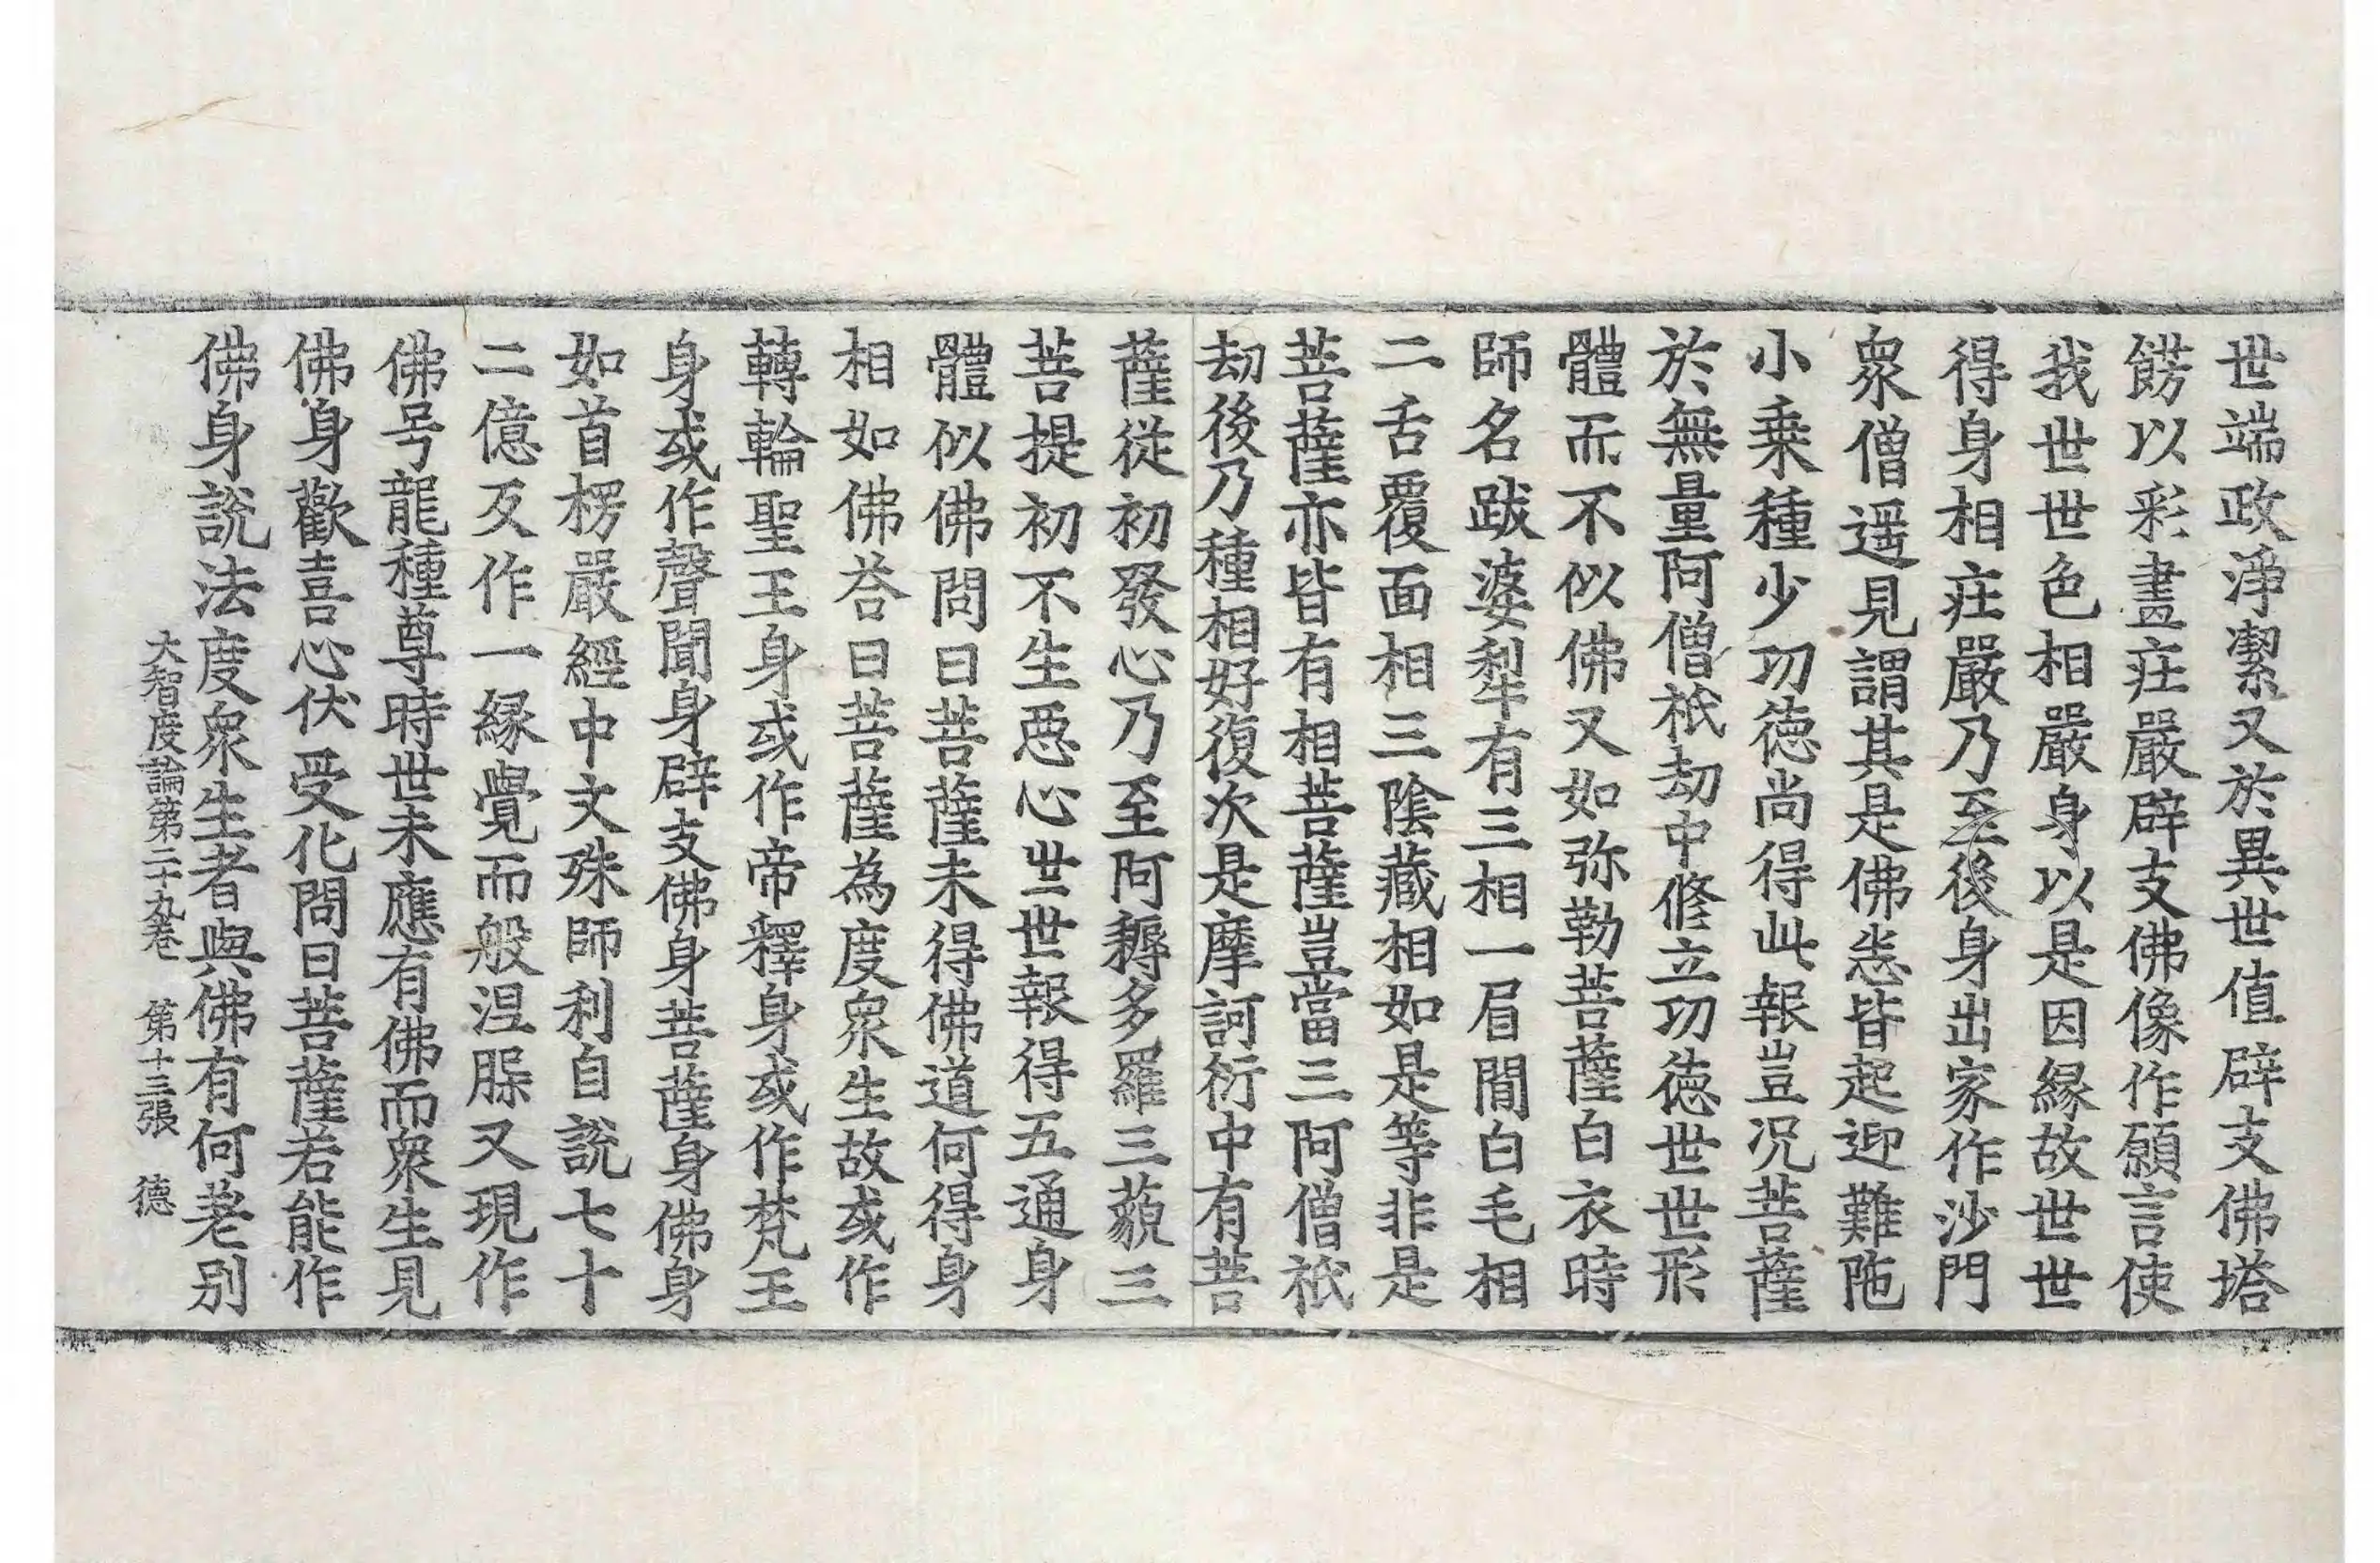 世端政淨潔又於異世值辟支佛塔
餝以彩畫疘嚴辟支佛像作願言使
我世世色相嚴身以是因縁故世世
得身相疘嚴乃至後身出家作沙門
衆僧遥見謂其是佛悉皆起迎難陁
小乗種少功徳尚得此報豈况菩薩
於無量阿僧祇劫中修立功徳世世形
體而不似佛又如弥勒菩薩白衣時
師名跋婆犁有三相一眉間白毛相
二舌覆面相三陰藏相如是等非是
菩薩亦皆有相菩薩豈當三阿僧祇
劫後乃種相好復次是摩訶衍中有菩
薩從初發心乃至阿耨多羅三藐三
菩提初不生惡心世世報得五通身
體似佛問曰菩薩未得佛道何得身
相如佛荅曰菩薩為度衆生故或作
轉輪聖王身或作帝釋身或作梵王
身或作聲聞身辟支佛身菩薩身佛身
如首楞嚴經中文殊師利自說七十
二億反作一縁覺而般涅槃又現作
佛号龍種尊時世未應有佛而衆生見
佛身歡喜心伏受化問曰菩薩若能作
佛身說法度衆生者與佛有何差别
大智度論第二十九卷 第十三張 德